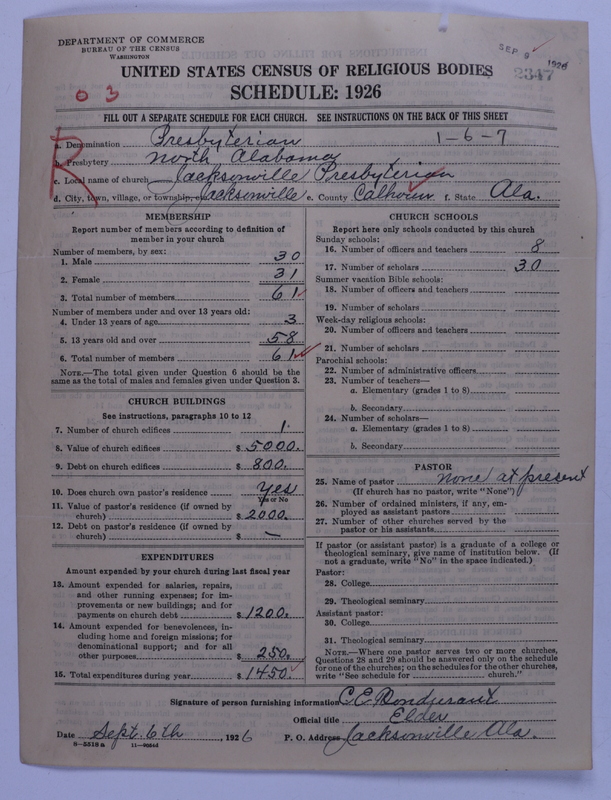 DEPARTMENT OF COMMERCE
BUREAU OF THE CENSUS
WASHINGTON
SEP 9 1926
2347
UNITED STATES CENSUS OF RELIGIOUS BODIES
SCHEDULE: 1926
03
FILL OUT A SEPARATE SCHEDULE FOR EACH CHURCH. SEE INSTRUCTIONS ON THE BACK OF THIS SHEET
R
a. Denomination Presbyterian 1-6-7
b. Presbytery North Alabama
c. Local name of church Jacksonville Presbyterian
d. City, town, village, or township Jacksonville e. County Calhoun f. State Ala.
MEMBERSHIP
Report number of members according to definition of
member in your church
Number of members, by sex:
1. Male 30
2. Female 31
3. Total number of members 61
Number of members under and over 13 years old:
4. Under 13 years of age 3
5. 13 years old and over 58
6. Total number of members 61
NOTE.—The total given under Question 6 should be
same as the total of males and females given under Question 3.
CHURCH BUILDINGS
See instructions, paragraphs 10 to 12
7. Number of church edifices 1.
8. Value of church edifices $ 5000.
9. Debt on church edifices $ 800.
10. Does church own pastor's residence Yes
Yes or No
11. Value of pastor's residence (if owned by
church) $ 2000.
12. Debt on pastor's residence (if owned by
church) $ —
EXPENDITURES
Amount expended by your church during last fiscal year
13. Amount expended for salaries, repairs,
and other running expenses; for im-
provements or new buildings; and for
payments on church debt $ 1200.
14. Amount expended for benevolences, in-
cluding home and foreign missions; for
denominational support; and for all
other purposes $ 250.
15. Total expenditures during year $ 1450.
CHURCH SCHOOLS
Report here only schools conducted by this church
Sunday schools:
16. Number of officers and teachers 8
17. Number of scholars 30
Summer vacation Bible schools:
18. Number of officers and teachers
19. Number of scholars
Week-day religious schools:
20. Number of officers and teachers
21. Number of scholars
Parochial schools:
22. Number of administrative officers
23. Number of teachers—
a. Elementary (grades 1 to 8)
b. Secondary
24. Number of scholars—
a. Elementary (grades 1 to 8)
b. Secondary
PASTOR
25. Name of pastor none at present
(If church has no pastor, write "None")
26. Number of ordained ministers, if any, em-
ployed as assistant pastors
27. Number of other churches served by the
pastor or his assistants
If pastor (or assistant pastor) is a graduate of a college or
theological seminary, give name of institution below. (If
not a graduate, write "No" in the space indicated.)
Pastor:
28. College
29. Theological seminary
Assistant pastor:
30. College
31. Theological seminary
NOTE.—Where one pastor serves two or more churches,
Questions 28 and 29 should be answered only on the schedule
for one of the churches; on the schedules for the other churches,
write "See schedule for church."
Signature of person furnishing information C. E. Bondurant
Official title Elder
Date Sept. 6th, 1926 P. O. Address Jacksonville Ala.